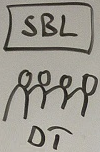 SBL
DT